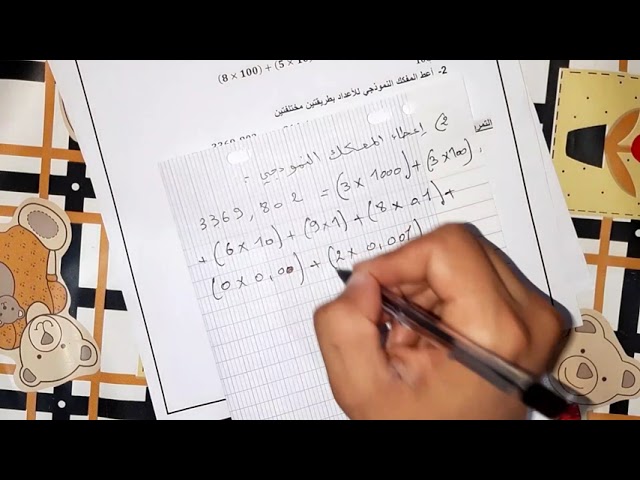 (8 × 100) + (5 × 10
2- أعط المفكك النموذجي للأعداد بطريقتين مختلفتين
2) إعطاء المفكك النموذجي :
3369,802 = (3 × 1000) + (3 × 100)
+ (6 × 10) + (9 × 1) + (8 × 0,1) +
(0 × 0,00) + (2 × 0,001)